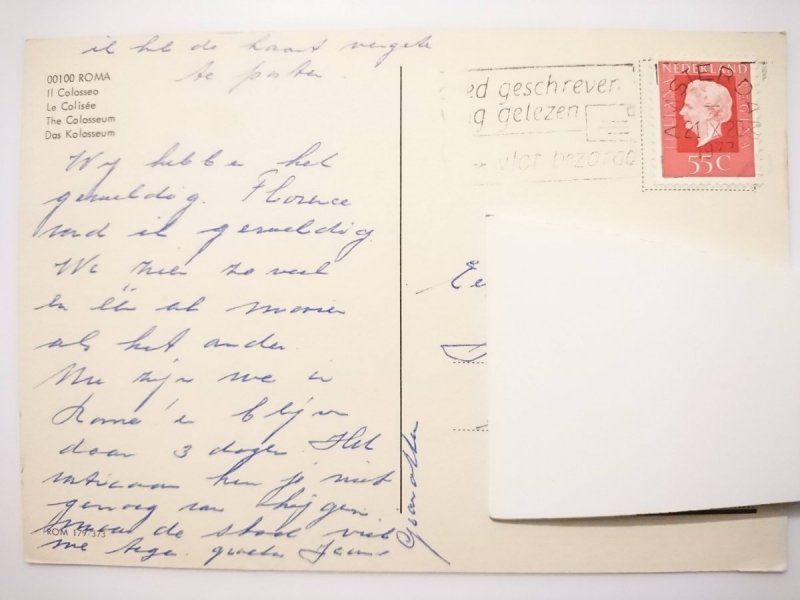 ik heb de kaart vergete
te posten
00100 ROMA
Il Colosseo
Le Colisée
The Colosseum
Das Kolosseum
Wij hebben het
geweldig. Florence
vond ik geweldig
We zien zo veel
en één al mooier
als het ander.
Nu zijn we in
Rome en blijven
daar 3 dagen. Het
vaticaan kan je niet
genoeg van krijgen
maar de stad viel
me tegen. groeten
ROM 179/373
ed geschreven
ag gelezen
vlot bezorgd
NEDERLAND
55C